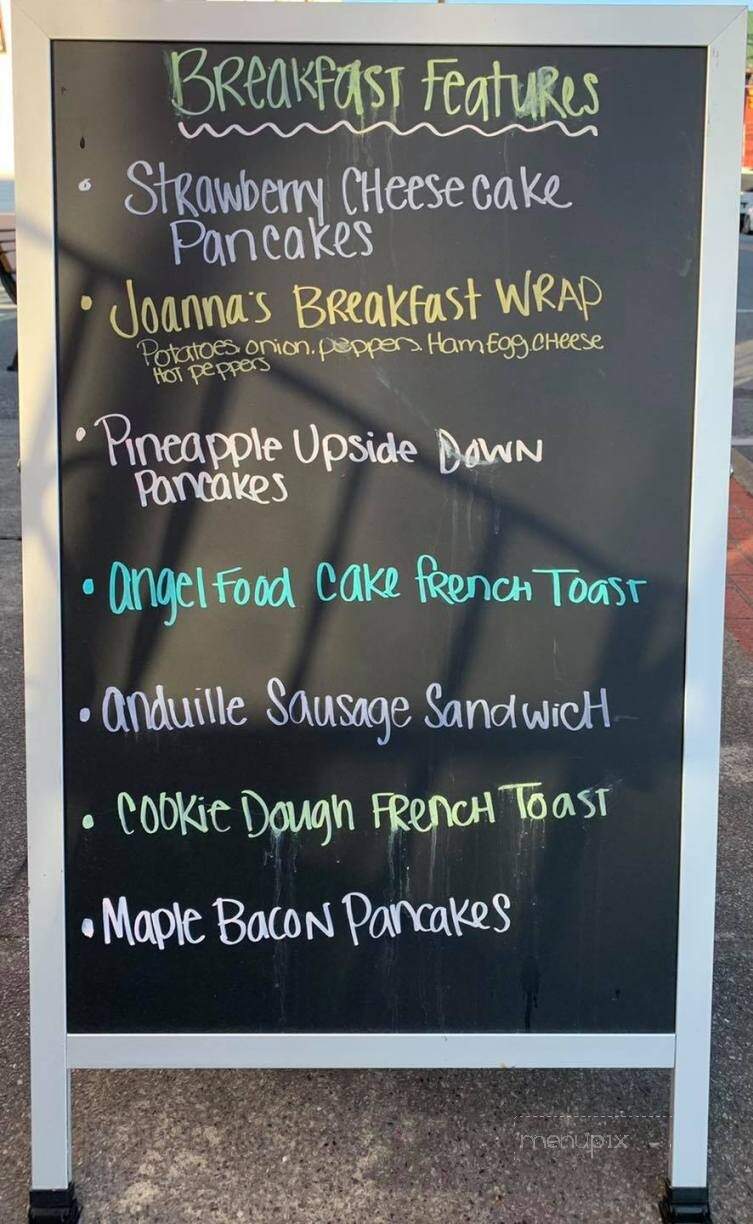 Breakfast Features
• Strawberry Cheesecake
Pancakes
• Joanna's Breakfast Wrap
Potatoes, onion, peppers, Ham, Egg, Cheese
Hot peppers
• Pineapple Upside Down
Pancakes
• Angel Food Cake French Toast
• Anduille Sausage Sandwich
• Cookie Dough French Toast
• Maple Bacon Pancakes
menupix